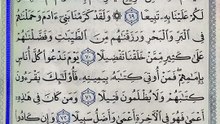 لَكُمْ عَلَيْنَا بِهِۦ تَبِيعًا ٦٩ ۞ وَلَقَدْ كَرَّمْنَا بَنِىٓ ءَادَمَ وَحَمَلْنَٰهُمْ
فِى ٱلْبَرِّ وَٱلْبَحْرِ وَرَزَقْنَٰهُم مِّنَ ٱلطَّيِّبَٰتِ وَفَضَّلْنَٰهُمْ
عَلَىٰ كَثِيرٍ مِّمَّنْ خَلَقْنَا تَفْضِيلًا ٧٠ يَوْمَ نَدْعُوا۟ كُلَّ أُنَاسٍۭ
بِإِمَٰمِهِمْ فَمَنْ أُوتِىَ كِتَٰبَهُۥ بِيَمِينِهِۦ فَأُو۟لَٰٓئِكَ يَقْرَءُونَ
كِتَٰبَهُمْ وَلَا يُظْلَمُونَ فَتِيلًا ٧١ وَمَن كَانَ فِى هَٰذِهِۦٓ
أَعْمَىٰ فَهُوَ فِى ٱلْءَاخِرَةِ أَعْمَىٰ وَأَضَلُّ سَبِيلًا ٧٢